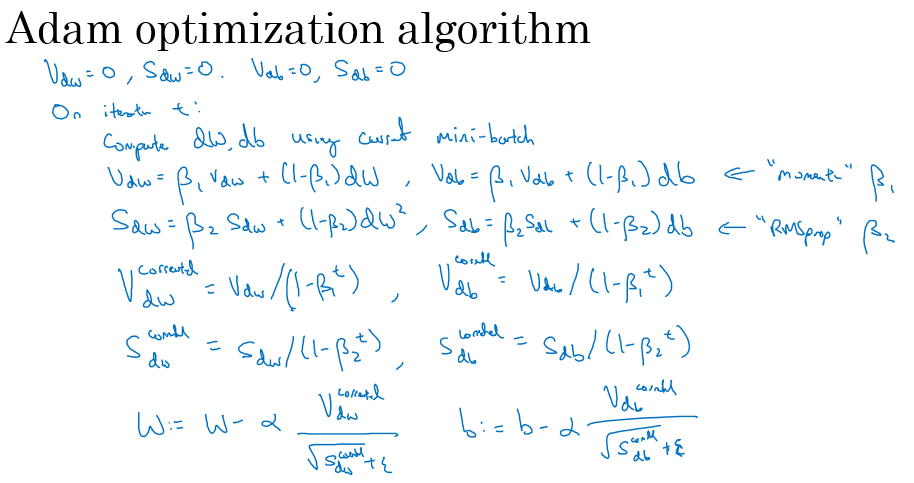 Adam optimization algorithm
V_dw = 0, S_dw = 0. V_db = 0, S_db = 0
On iteration t:
Compute dW, db using current mini-batch
V_dw = β₁ V_dw + (1-β₁) dW, V_db = β₁ V_db + (1-β₁) db ← "moment" β₁
S_dw = β₂ S_dw + (1-β₂) dW², S_db = β₂ S_db + (1-β₂) db ← "RMSprop" β₂
V_dw^corrected = V_dw/(1-β₁^t), V_db^corrected = V_db/(1-β₁^t)
S_dw^corrected = S_dw/(1-β₂^t), S_db^corrected = S_db/(1-β₂^t)
W := W - α V_dw^corrected / (√S_dw^corrected + ε) b := b - α V_db^corrected / (√S_db^corrected + ε)